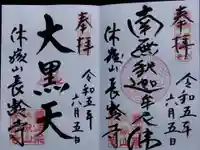 奉拝
南無釈迦牟尼佛
令和五年
六月五日
休岩山長龄寺
奉拝
大黒天
令和五年
六月五日
長龄寺